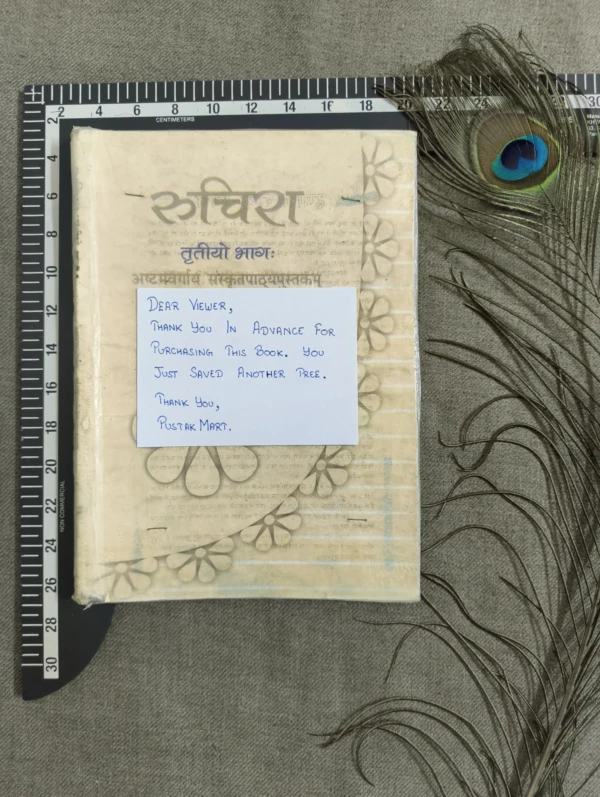 2 4 6 8 10 12 14 16 18 20 22 24 30
CENTIMETERS
2
4
6
8
10
12
14
16
18
20
22
24
26
28
30
NON COMMERCIAL
रुचिरा
तृतीयो भागः
अष्टमवर्गाय संस्कृतपाठ्यपुस्तकम्
DEAR VIEWER,
THANK YOU IN ADVANCE FOR
PURCHASING THIS BOOK. YOU
JUST SAVED ANOTHER TREE.
THANK YOU,
PUSTAK MART.